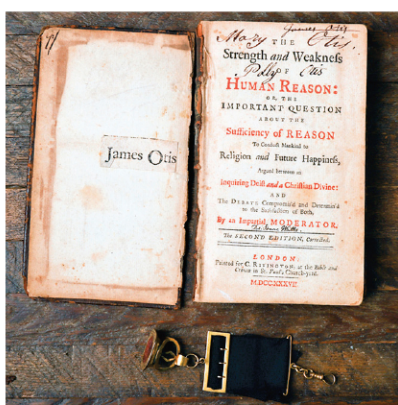 James Otis
James Otis
Mary Otis
THE
Strength and Weakness
Polly Otis
OF
HUMAN REASON:
OR, THE
IMPORTANT QUESTION
ABOUT THE
Sufficiency of REASON
To Conduct Mankind to
Religion and Future Happiness,
Argued between an
Inquiring Deist and a Christian Divine:
AND
The DEBATE Compromis'd and Determin'd
to the Satisfaction of Both,
By an Impartial MODERATOR.
The SECOND EDITION, Corrected.
LONDON:
Printed for C. RIVINGTON, at the Bible and
Crown in St. Paul's Church-yard.
M.DCC.XXXVII.